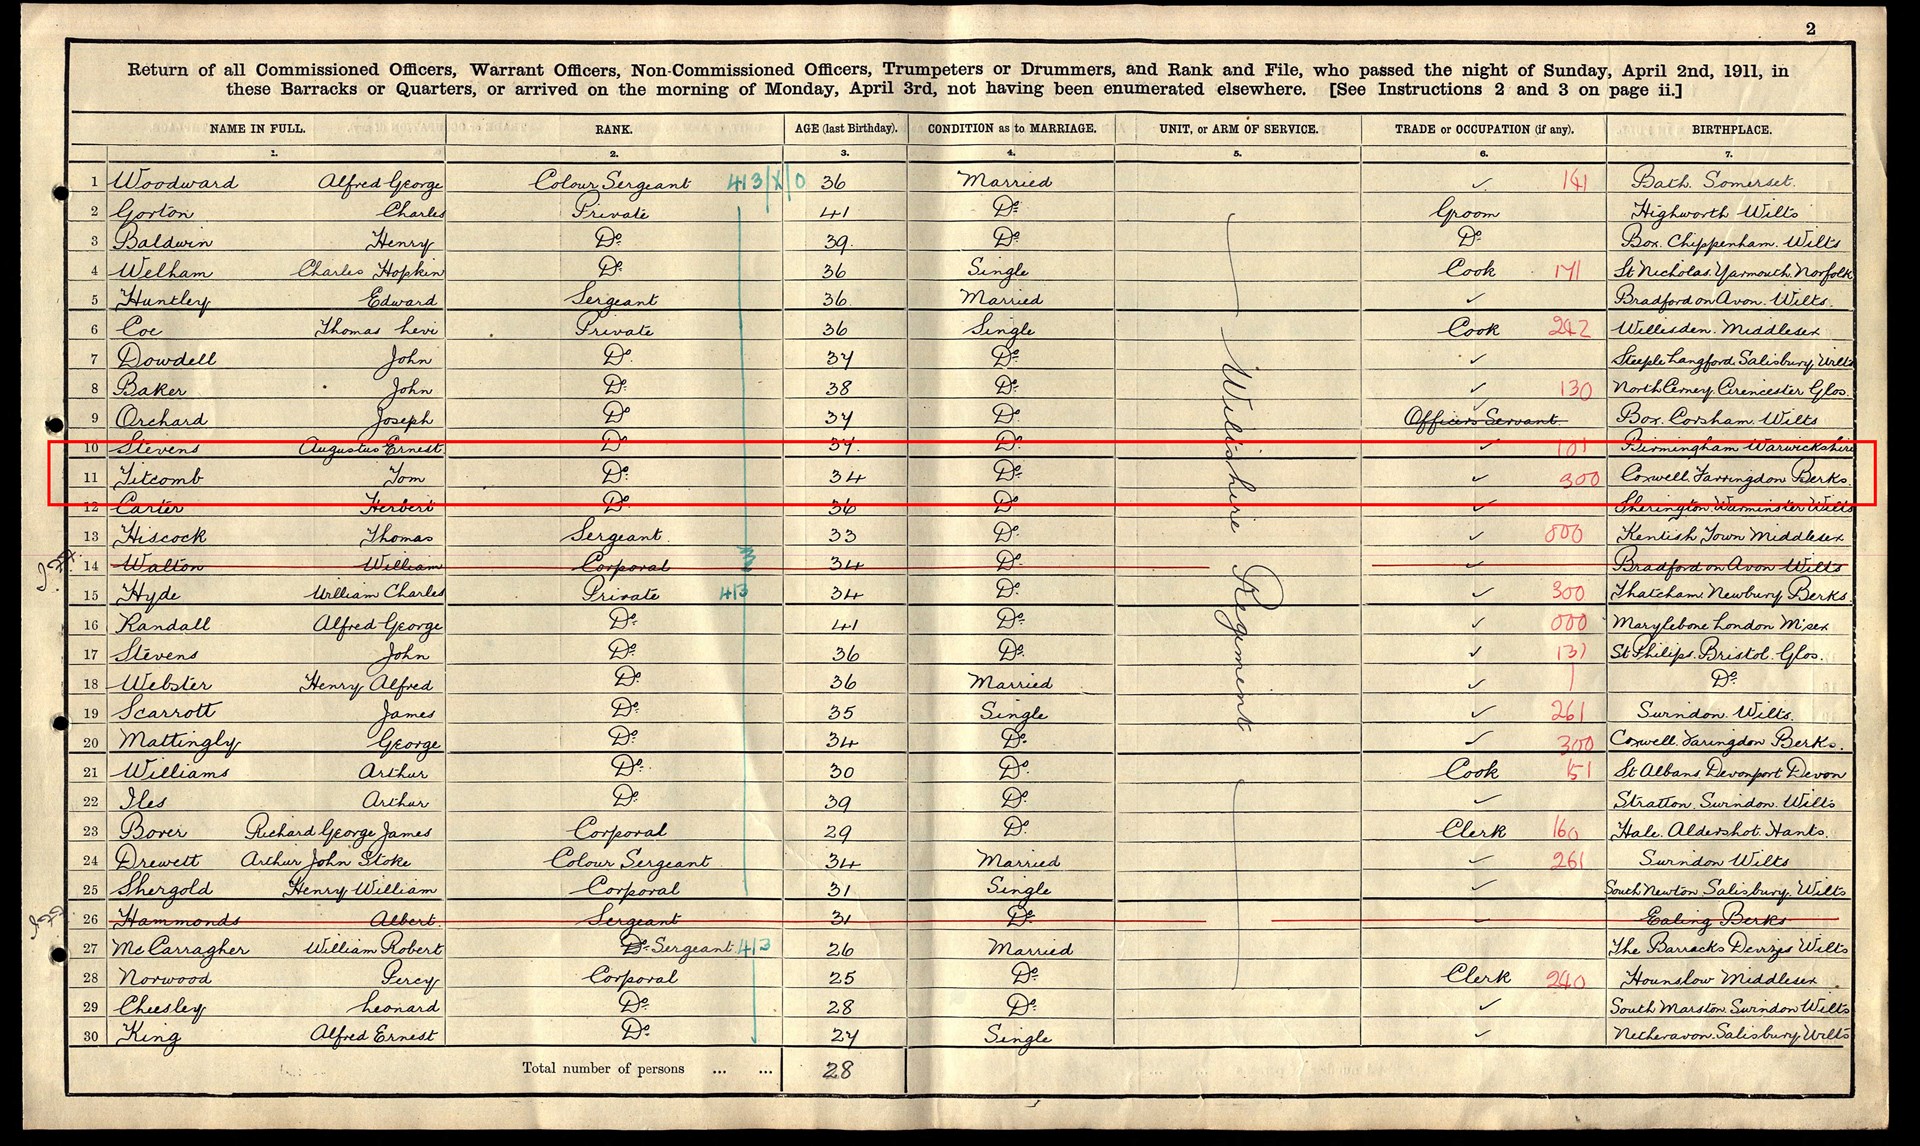 2
Return of all Commissioned Officers, Warrant Officers, Non-Commissioned Officers, Trumpeters or Drummers, and Rank and File, who passed the night of Sunday, April 2nd, 1911, in
these Barracks or Quarters, or arrived on the morning of Monday, April 3rd, not having been enumerated elsewhere. [See Instructions 2 and 3 on page ii.]
NAME IN FULL. RANK. AGE (last Birthday). CONDITION as to MARRIAGE. UNIT, or ARM OF SERVICE. TRADE or OCCUPATION (if any). BIRTHPLACE.
1. 2. 3. 4. 5. 6. 7.
1 Woodward Alfred George Colour Sergeant 413/X/0 36 Married ✓ 141 Bath. Somerset.
2 Gorton Charles Private 41 Do. Groom Highworth Wilts
3 Baldwin Henry Do. 39. Do. Do. Box. Chippenham. Wilts
4 Welham Charles Hopkin Do. 36 Single Cook 171 St Nicholas. Yarmouth. Norfolk
5 Huntley Edward Sergeant 36. Married ✓ Bradford on Avon. Wilts.
6 Coe Thomas Levi Private 36 Single Cook 242 Willisden. Middlesex
7 Dowdell John Do. 37 Do. ✓ Steeple Langford Salisbury Wilts
8 Baker John Do. 38 Do. ✓ 130 North Cerney. Cirencester Glos.
9 Orchard Joseph Do 37 Do. Officers Servant. Box. Corsham. Wilts
10 Stevens Augustus Ernest. Do 37. Do. ✓ 101 Birmingham Warwickshire
11 Titcomb Tom Do. 34 Do. ✓ 300 Coxwell. Farringdon Berks.
12 Carter Herbert Do. 36 Do. ✓ Sherington. Warminster Wilts
13 Hiscock Thomas Sergeant. 33 Do. ✓ 800 Kentish Town Middlesex
14 Walton William Corporal 34 Do. ✓ Bradford on Avon Wilts
15 Hyde William Charles Private 413 34 Do. ✓ 300 Thatcham Newbury Berks.
16 Randall Alfred George Do. 41 Do. ✓ 000 Marylebone London M'sex
17 Stevens John Do. 36 Do. ✓ 131 St Philips. Bristol. Glos.
18 Webster Henry Alfred Do. 36 Married ✓ Do.
19 Scarrott James Do. 35 Single ✓ 261 Swindon. Wilts.
20 Mattingly George Do. 34 Do. ✓ 300 Coxwell. Faringdon Berks.
21 Williams Arthur Do. 30 Do. Cook 151 St Albans Devonport Devon
22 Iles Arthur Do. 39 Do. ✓ Stratton. Swindon. Wilts
23 Bover Richard George James Corporal 29 Do. Clerk 160 Hale. Aldershot. Hants.
24 Drewett Arthur John Stoke Colour Sergeant 34 Married ✓ 261 Swindon Wilts
25 Shergold Henry William Corporal 31 Single ✓ South Newton Salisbury. Wilts
26 Hammonds Albert. Sergeant 31 Do. ✓ Ealing Berks
27 McCarragher William Robert Do. Sergeant 413 26 Married The Barracks Devizes Wilts
28 Norwood Percy Corporal 25 Do. Clerk 240 Hounslow Middlesex
29 Cheesley Leonard Do. 28 Do. ✓ South Marston Swindon Wilts
30 King Alfred Ernest Do. 27 Single ✓ Netheravon. Salisbury Wilts
Wiltshire Regiment
Total number of persons ... ... 28